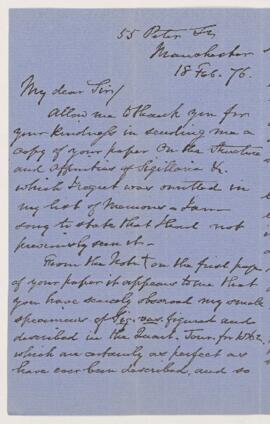 55 Peter St,
Manchester
18 Feb. 76.
My dear Sir/
Allow me to thank you for
your kindness in sending me a
copy of your paper On the Structure
and Affinities of Sigillaria &c.
which I regret was omitted in
my list of Memoirs. I am
sorry to state that I had not
previously seen it.
From the Note on the first page
of your paper it appears to me that
you have scarcely observed my small
specimens of Sig. vas. figured and
described in the Quart. Jour. for 1862
which are certainly as perfect as
have ever been described, and so